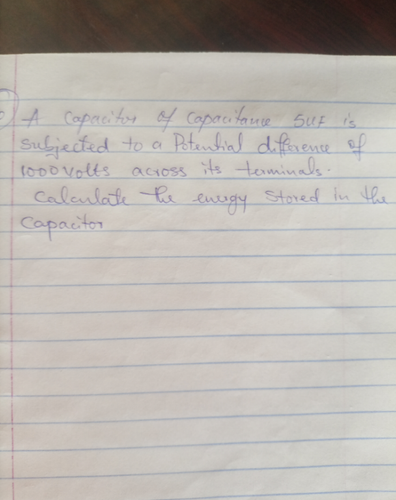 A Capacitor of Capacitance 5UF is
subjected to a Potential difference of
1000 Volts across its terminals.
Calculate the energy Stored in the
Capacitor